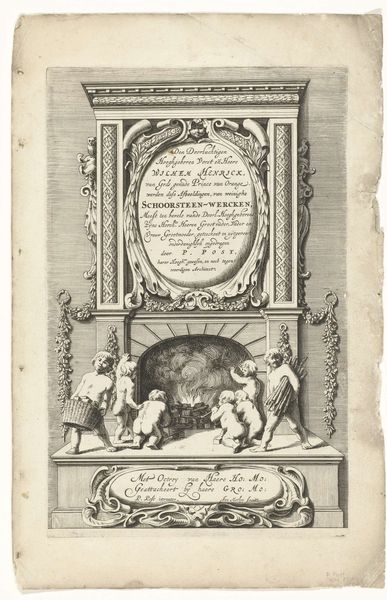 Den Doorluchtigen
Hooghgeboren Vorst en Heere
WILHEM HENRICK,
van Gods genade Prince van Orange
werden dese Afbeeldingen, van weinighe
SCHOORSTEEN-WERCKEN,
Meest ten bevele van de Doorl. Hooghgeboren
Heeren Groot vader, Vader en
Vrouw Grootmoeder, geteeckent en
onderdanighst opgedragen
door P. POST,
gewesen, en noch tegen
woordigen Architect.
Met Octroy van Haere HO: MO:
Geattacheert by haere GRO: MO:
P. Post inventor